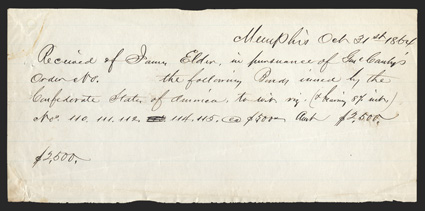 Memphis Oct 31st 1864
Received of James Elder, in pursuance of Gen Canby's
Order No. the following Bonds issued by the
Confederate States of America, to wit viz. (& bearing 8% int.)
No. 110. 111. 112. 114. 115. @ $500 each $2,500.
$2,500.